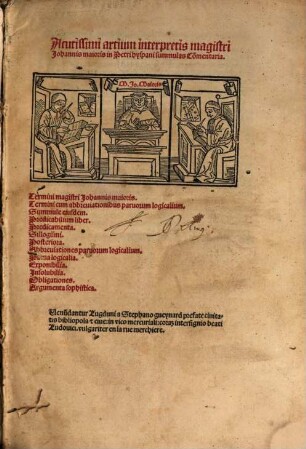 Acutissimi artium interpretis magistri
Johannis maioris in Petri hyspani summulas Cõmentaria.
M. Jo. Maioris
Termini magistri Johannis maioris.
Termini cum abbreuationibus paruorum logicalium.
Summule eiusdem.
Predicabilium liber.
Predicamenta.
Sillogismi.
Posteriora.
Abbreuiationes paruorum logicalium.
Parua logicalia.
Exponibilia.
Insolubilia.
Obligationes.
Argumenta sophistica.
Venũdantur Lugduni a Stephano gueynard prefate ciuita-
tis bibliopola et ciue: in vico mercuriali: coram intersignio beati
Ludouici. vulgariter en la rue merchiere.